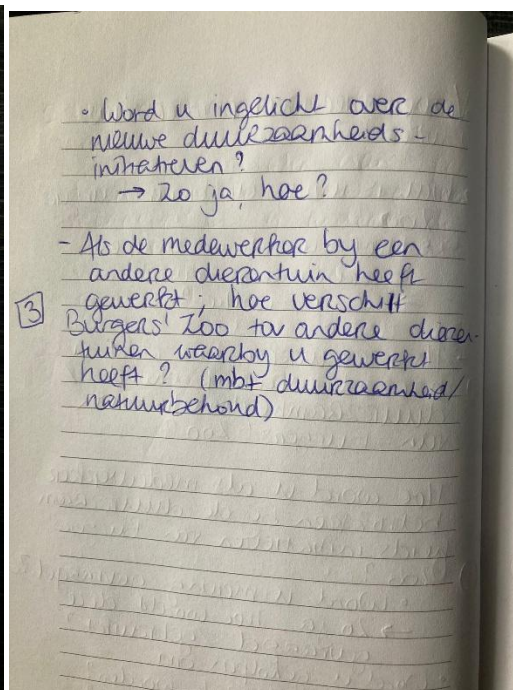 • Word u ingelicht over de
nieuwe duurzaamheids-
initiatieven?
→ Zo ja, hoe?
- Als de medewerker by een
andere dierentuin heeft
gewerkt; hoe verschilt
3 Burgers' Zoo tov andere dieren-
tuinen waarby u gewerkt
heeft? (mbt duurzaamheid/
natuurbehoud)